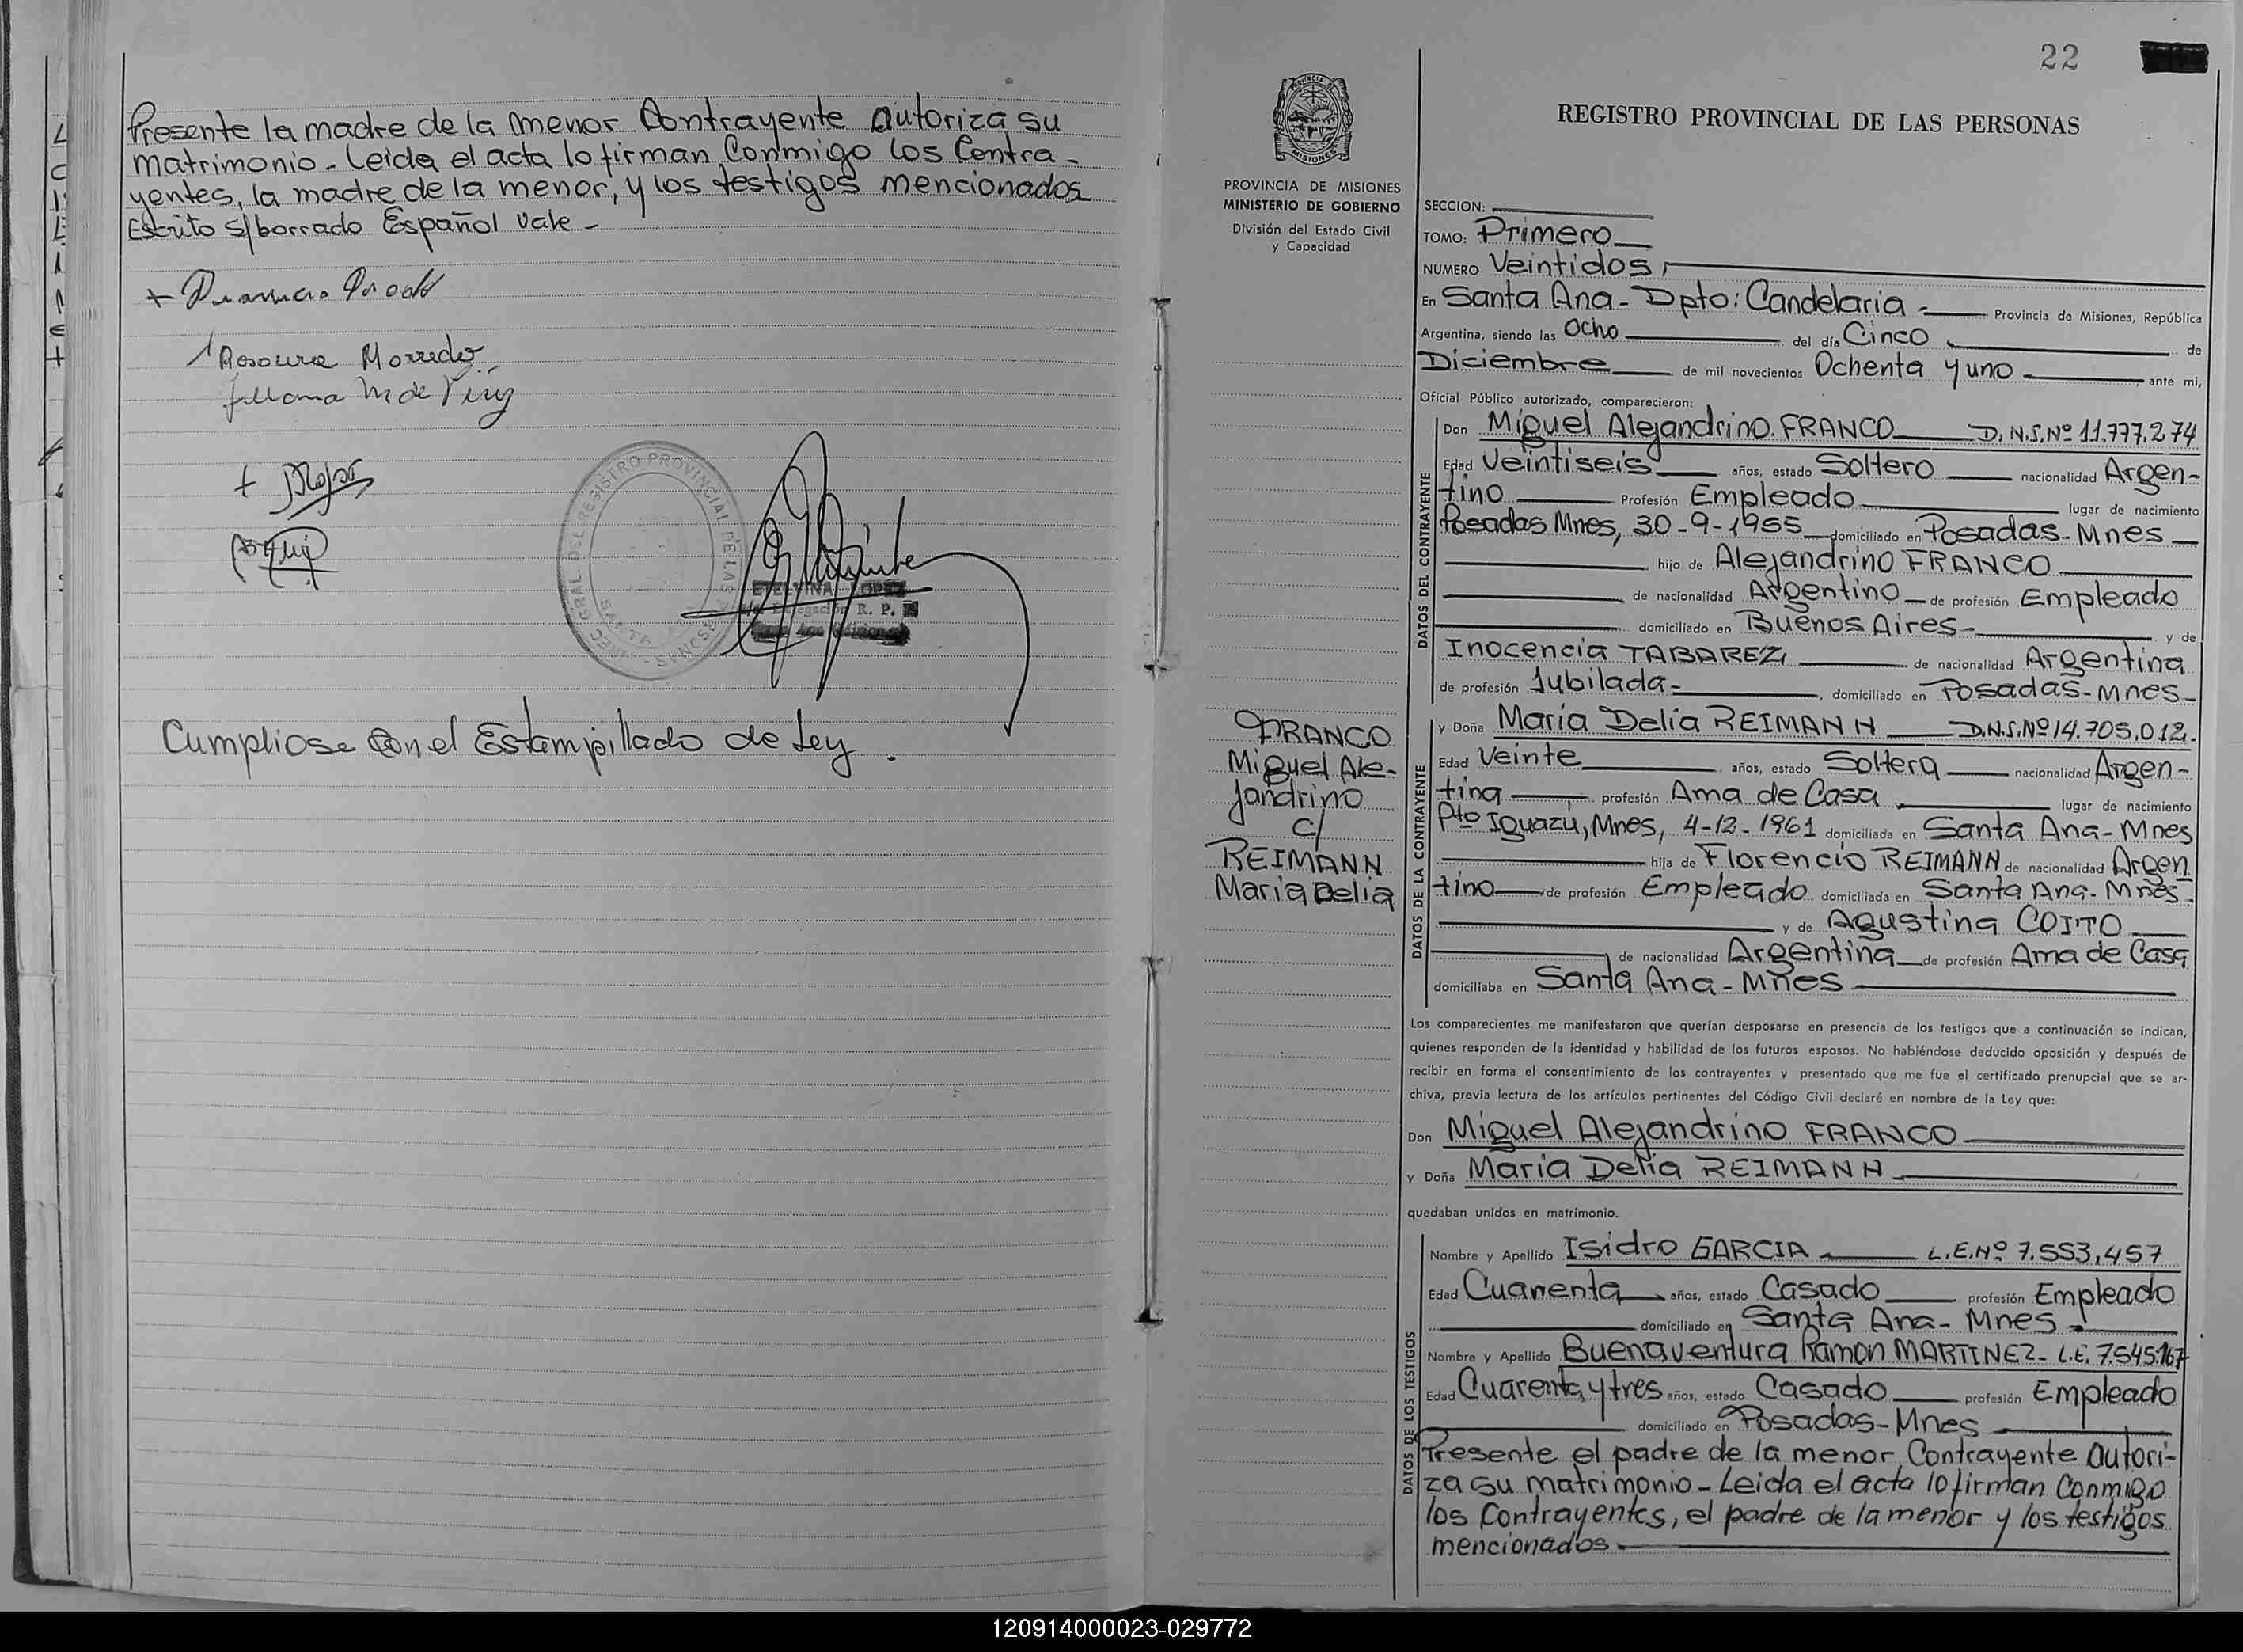 Presente la madre de la menor Contrayente autoriza su
matrimonio. Leida el acta lo firman Conmigo los Contra-
yentes, la madre de la menor, y los testigos mencionados
Escrito s/borrado Español Vale -
Cumpliose Con el Estampillado de Ley.
22
PROVINCIA DE MISIONES
MINISTERIO DE GOBIERNO
División del Estado Civil
y Capacidad
FRANCO
Miguel Ale-
jandrino
c/
REIMANN
Maria Delia
REGISTRO PROVINCIAL DE LAS PERSONAS
SECCION:
TOMO: Primero
NUMERO Veintidos
En Santa Ana - Dpto: Candelaria - Provincia de Misiones, República
Argentina, siendo las Ocho del día Cinco de
Diciembre de mil novecientos Ochenta y uno ante mi,
Oficial Público autorizado, comparecieron:
DATOS DEL CONTRAYENTE
Don Miguel Alejandrino FRANCO D.N.I. Nº 11.777.274
Edad Veintiseis años, estado Soltero nacionalidad Argen-
tino Profesión Empleado lugar de nacimiento
Posadas Mnes, 30-9-1955 domiciliado en Posadas-Mnes
hijo de Alejandrino FRANCO
de nacionalidad Argentino de profesión Empleado
domiciliado en Buenos Aires- y de
Inocencia TABAREZ de nacionalidad Argentina
de profesión Jubilada- , domiciliado en Posadas-Mnes-
DATOS DE LA CONTRAYENTE
y Doña Maria Delia REIMANN D.N.I. Nº 14.705.012.
Edad Veinte años, estado Soltera nacionalidad Argen-
tina profesión Ama de Casa lugar de nacimiento
Pto Iguazú, Mnes, 4-12-1961 domiciliada en Santa Ana-Mnes
hija de Florencio REIMANN de nacionalidad Argen
tino de profesión Empleado domiciliada en Santa Ana-Mnes-
y de Agustina COITO
de nacionalidad Argentina de profesión Ama de Casa
domiciliaba en Santa Ana - Mnes
Los comparecientes me manifestaron que querían desposarse en presencia de los testigos que a continuación se indican,
quienes responden de la identidad y habilidad de los futuros esposos. No habiéndose deducido oposición y después de
recibir en forma el consentimiento de los contrayentes y presentado que me fue el certificado prenupcial que se ar-
chiva, previa lectura de los artículos pertinentes del Código Civil declaré en nombre de la Ley que:
Don Miguel Alejandrino FRANCO
y Doña Maria Delia REIMANN
quedaban unidos en matrimonio.
DATOS DE LOS TESTIGOS
Nombre y Apellido Isidro GARCIA L.E. Nº 7.553.457
Edad Cuarenta años, estado Casado profesión Empleado
domiciliado en Santa Ana- Mnes
Nombre y Apellido Buenaventura Ramon MARTINEZ- L.E. 7.545.167
Edad Cuarenta y tres años, estado Casado profesión Empleado
domiciliado en Posadas-Mnes
Presente el padre de la menor Contrayente autori-
za su matrimonio - Leida el acta lo firman Conmigo
los Contrayentes, el padre de la menor y los testigos
mencionados
120914000023-029772